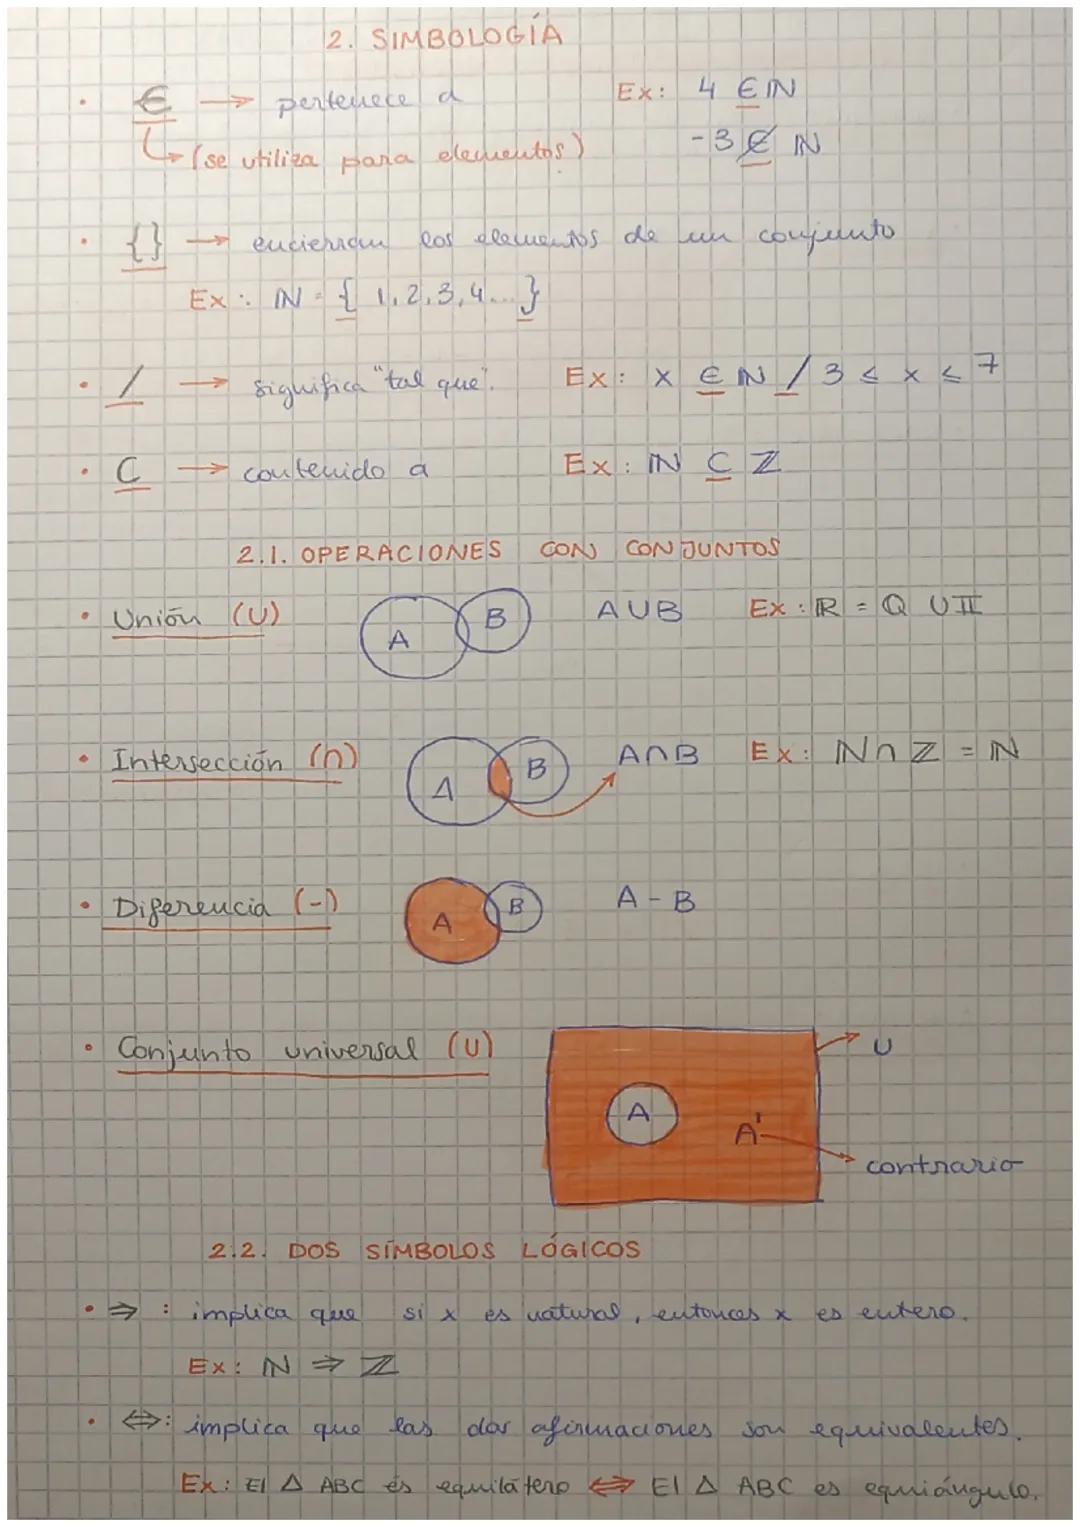 2. SIMBOLOGÍA
• € → pertenece a Ex: 4 ∈ ℕ
↳ (se utiliza para elementos) -3 ∉ ℕ
• {} → encierran los elementos de un conjunto
Ex: ℕ = { 1, 2, 3, 4... }
• / → significa "tal que". Ex: x ∈ ℕ / 3 ≤ x ≤ 7
• ⊂ → contenido a Ex: ℕ ⊂ ℤ
2.1. OPERACIONES CON CONJUNTOS
• Unión (U) A B AUB Ex: ℝ = ℚ U 𝕀
• Intersección (∩) A B A∩B Ex: ℕ ∩ ℤ = ℕ
• Diferencia (-) A B A - B
• Conjunto universal (U) U
A A'
contrario
2.2. DOS SÍMBOLOS LÓGICOS
• ⇒ : implica que si x es natural, entonces x es entero.
Ex: ℕ ⇒ ℤ
• ⇔: implica que las dos afirmaciones son equivalentes.
Ex: El △ ABC és equilátero ⇔ El △ ABC es equiángulo.